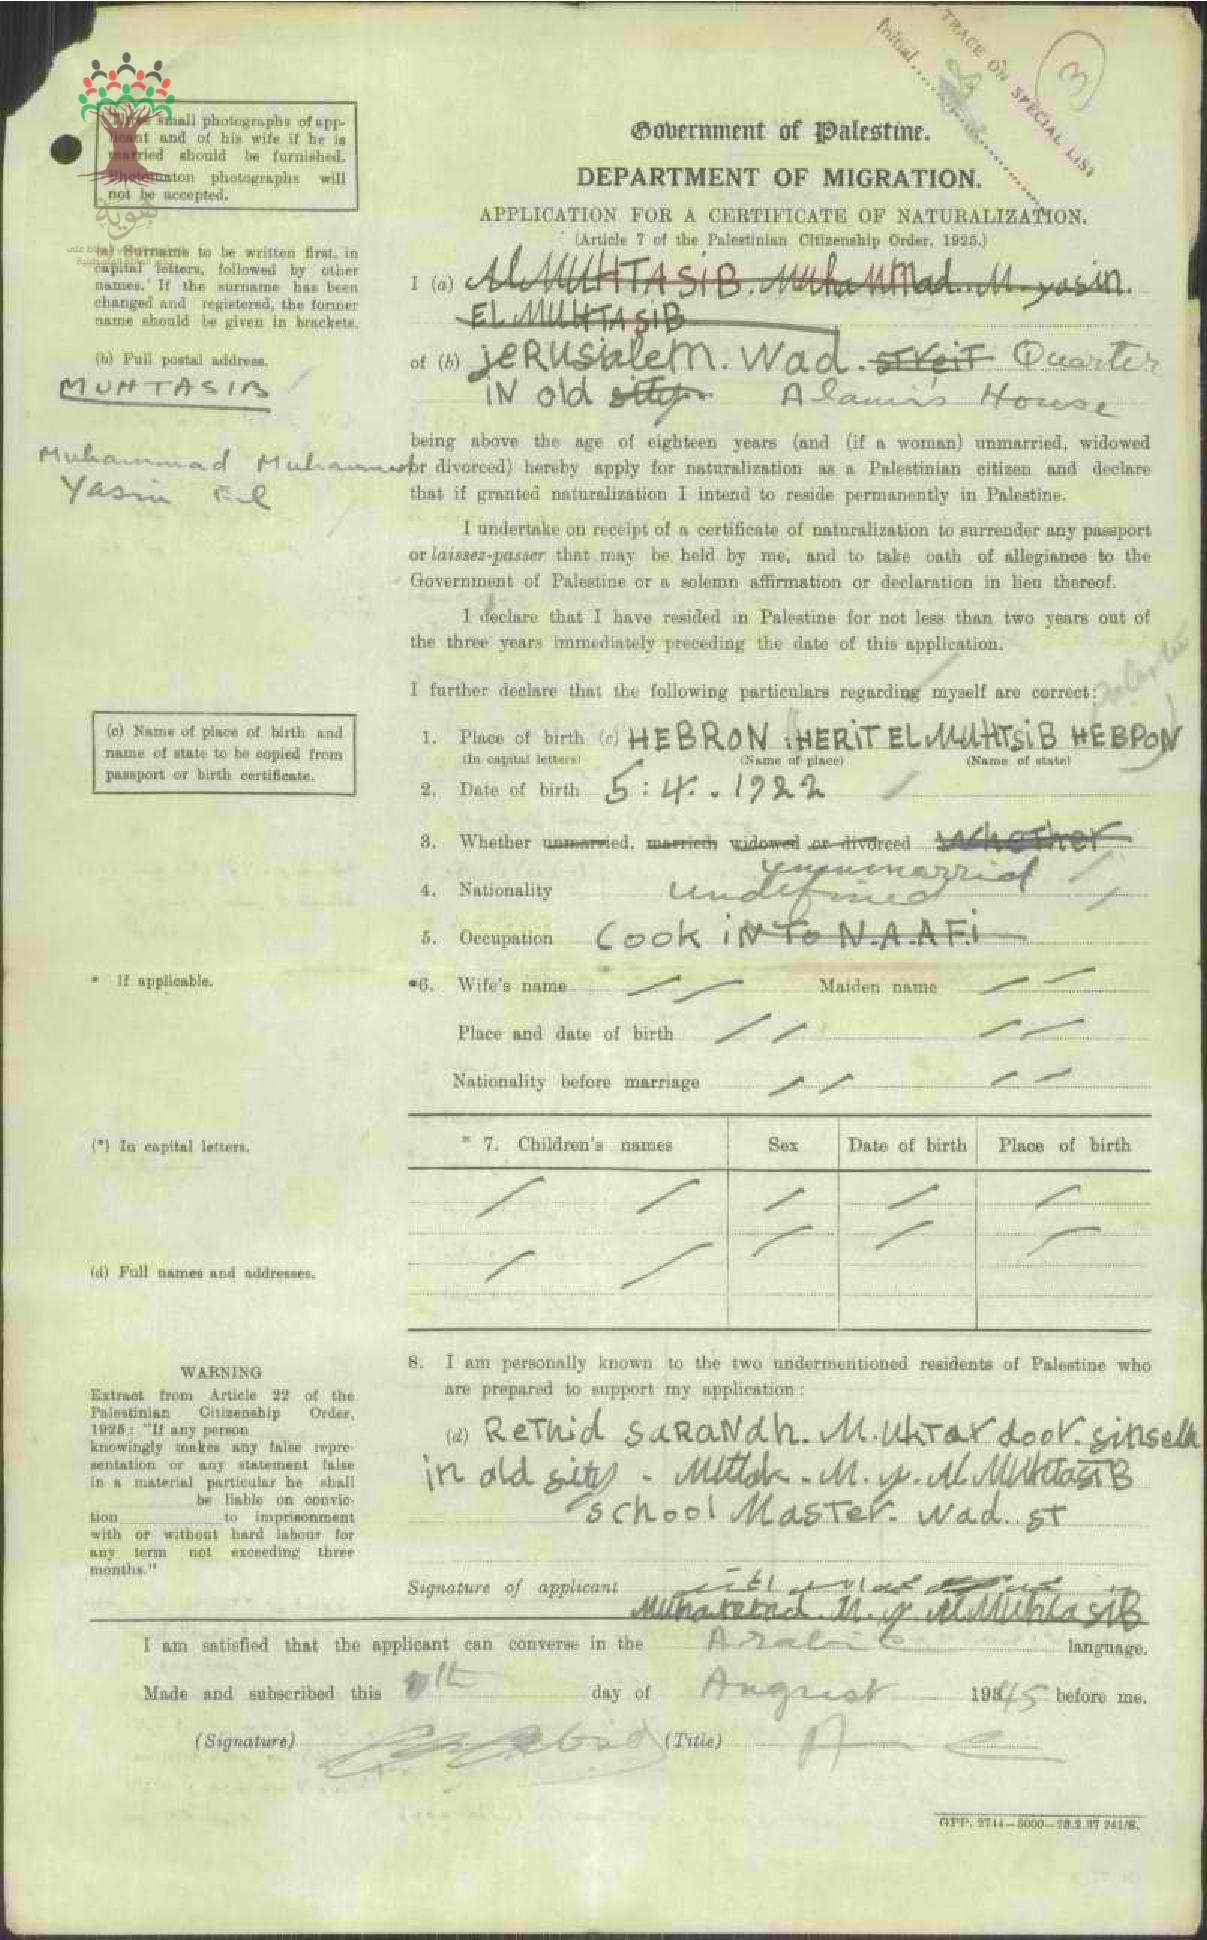 TRACE ON SPECIAL LIST
Initial
3
Three small photographs of app-
licant and of his wife if he is
married should be furnished.
Photomaton photographs will
not be accepted.
هوية
Government of Palestine.
DEPARTMENT OF MIGRATION.
APPLICATION FOR A CERTIFICATE OF NATURALIZATION.
(Article 7 of the Palestinian Citizenship Order, 1925.)
(a) Surname to be written first, in
capital letters, followed by other
names. If the surname has been
changed and registered, the former
name should be given in brackets.
I (a) Al MUHTASiB. Muhammad. M. yasin.
EL MUHTASiB
(b) Full postal address.
MUHTASIB
of (b) jERUSialem. Wad. streit Quarter
iN old sity Alami's House
Muhammad Muhammad
Yasin El
being above the age of eighteen years (and (if a woman) unmarried, widowed
or divorced) hereby apply for naturalization as a Palestinian citizen and declare
that if granted naturalization I intend to reside permanently in Palestine.
I undertake on receipt of a certificate of naturalization to surrender any passport
or laissez-passer that may be held by me, and to take oath of allegiance to the
Government of Palestine or a solemn affirmation or declaration in lieu thereof.
I declare that I have resided in Palestine for not less than two years out of
the three years immediately preceding the date of this application.
I further declare that the following particulars regarding myself are correct:
(c) Name of place of birth and
name of state to be copied from
passport or birth certificate.
1. Place of birth (c) HEBRON (HERiT EL MUHTSiB HEBPON)
(In capital letters) (Name of place) (Name of state)
2. Date of birth 5:4..1922
3. Whether unmarried, married, widowed or divorced Whether
unmarrid
4. Nationality undefined
5. Occupation Cook iN To N.A.AF.i
* If applicable.
*6. Wife's name Maiden name
Place and date of birth
Nationality before marriage
(*) In capital letters.
* 7. Children's names Sex Date of birth Place of birth
(d) Full names and addresses.
8. I am personally known to the two undermentioned residents of Palestine who
are prepared to support my application:
(d) ReThid SaRANdh. M.UKTar door. sinseln
in old sity - M. y. Al MUHTASiB
school MasTer. Wad. ST
WARNING
Extract from Article 22 of the
Palestinian Citizenship Order,
1925: "If any person
knowingly makes any false repre-
sentation or any statement false
in a material particular he shall
be liable on convic-
tion to imprisonment
with or without hard labour for
any term not exceeding three
months."
Signature of applicant
Muhammad. M. y. Al Muhtasib
I am satisfied that the applicant can converse in the Arabic language.
Made and subscribed this day of August 19345 before me.
(Signature) (Title)
GPP. 2744—5000—23.2.37 241/S.